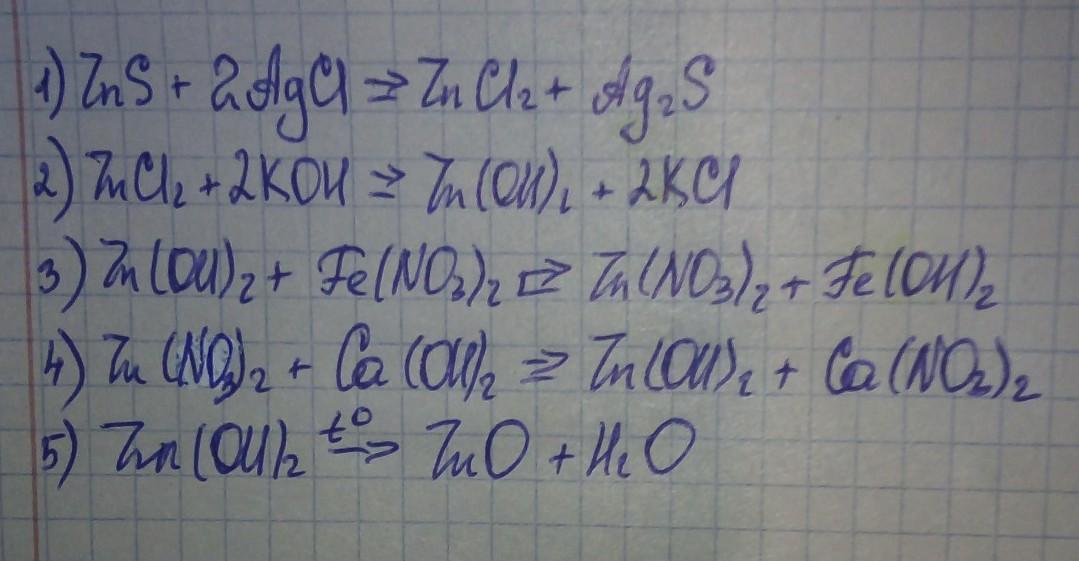 1) ZnS + 2AgCl ⇒ ZnCl₂ + Ag₂S
2) ZnCl₂ + 2KOH ⇒ Zn(OH)₂ + 2KCl
3) Zn(OH)₂ + Fe(NO₃)₂ ⇒ Zn(NO₃)₂ + Fe(OH)₂
4) Zn(NO₃)₂ + Ca(OH)₂ ⇒ Zn(OH)₂ + Ca(NO₂)₂
5) Zn(OH)₂ t° → ZnO + H₂O